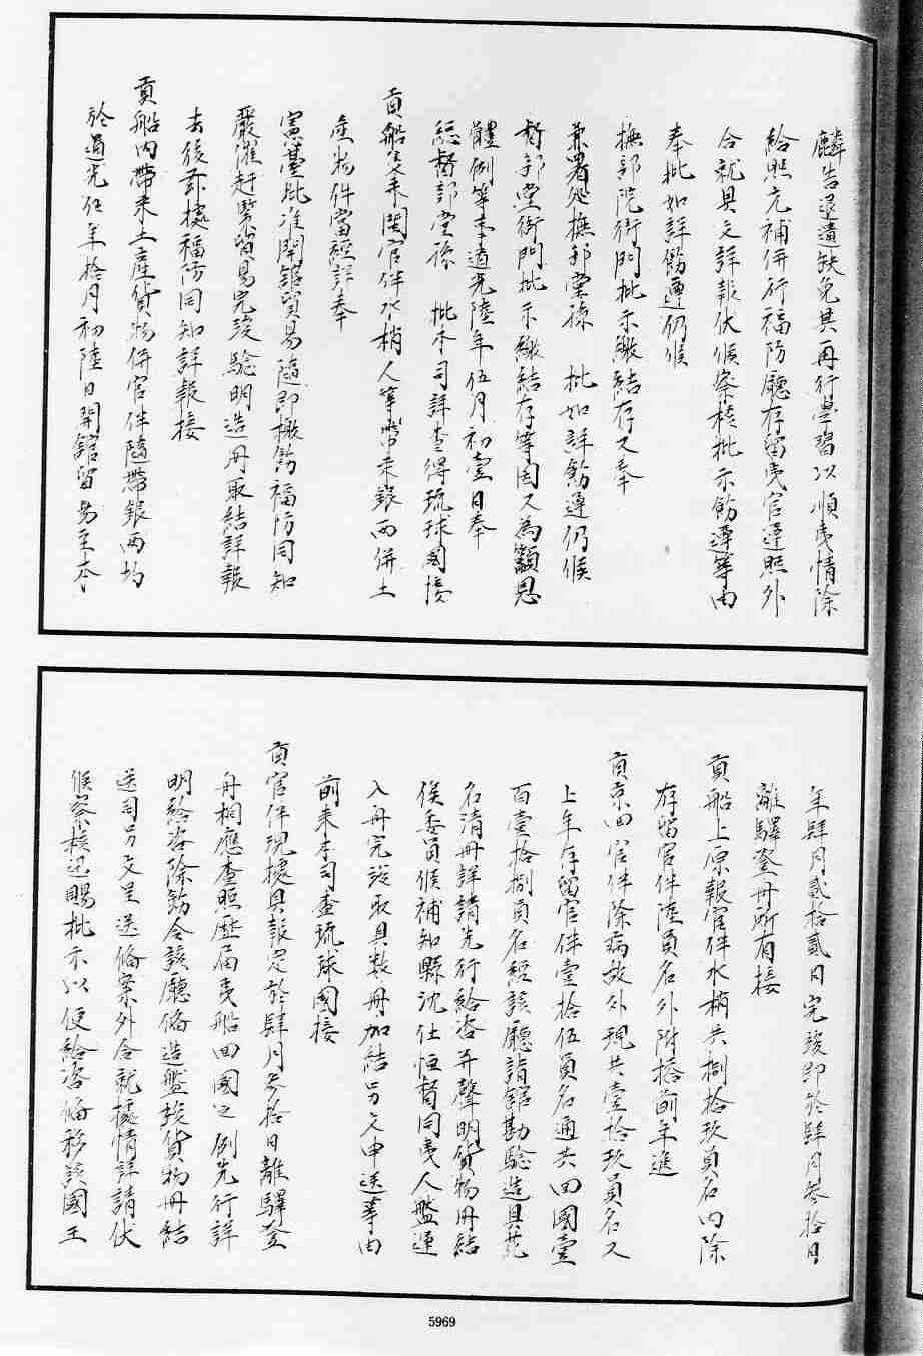 麟告退遺缺免其再行學習以順夷情除
給照充補併行福防廳存留夷官遵照外
合就具文詳報伏候察核批示飭遵等由
奉批如詳飭遵仍候
撫部院衙門批示繳結存又奉
兼署巡撫部堂孫　批如詳飭遵仍候
督部堂衙門批示繳結存等因又為籲懇
體例等事道光陸年伍月初壹日奉
總督部堂孫　批本司詳查得琉球國接
貢船隻來閩官伴水梢人等帶來銀兩併土
產物件當經詳奉
憲臺批准開館貿易隨即檄飭福防同知
嚴催趕緊貿易完竣驗明造冊取結詳報
去後茲據福防同知詳報接
貢船內帶來土產貨物併官伴隨帶銀兩均
於道光伍年拾月初陸日開館貿易至本
年肆月貳拾貳日完竣即於肆月叁拾日
離驛登舟所有接
貢船上原報官伴水梢共捌拾玖員名內除
存留官伴陸員名外附搭前年進
貢京回官伴除病故外現共壹拾玖員名又
上年存留官伴壹拾伍員名通共回國壹
百壹拾捌員名經該廳詣館勘驗造具花
名清冊詳請先行給咨并聲明貨物冊結
俟委員候補知縣沈仕恒督同夷人盤運
入舟完竣取具數冊加結另文申送等由
前來本司查琉球國接
貢官伴現據具報定於肆月叁拾日離驛登
舟相應查照歷屆夷船回國之例先行詳
明給咨除飭令該廳俻造盤驗貨物冊結
送司另文呈送俻案外合就據情詳請伏
候察核迅賜批示以便給咨俻移該國王
5969